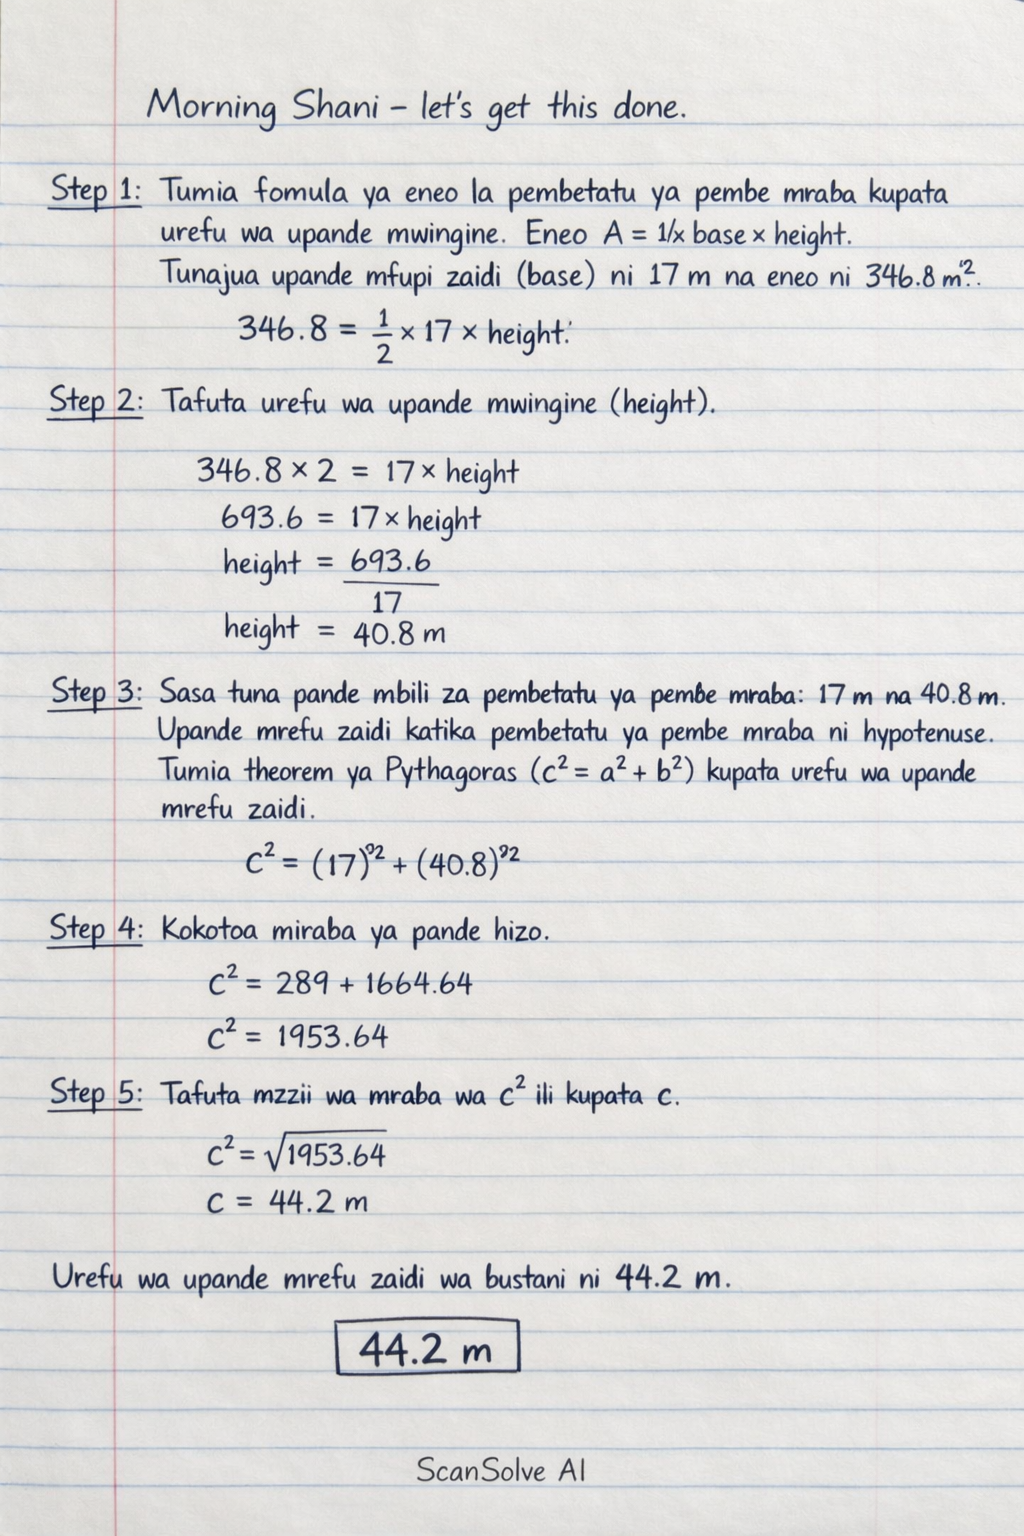 Morning Shani – let's get this done.
Step 1: Tumia fomula ya eneo la pembetatu ya pembe mraba kupata
urefu wa upande mwingine. Eneo A = 1/x base × height.
Tunajua upande mfupi zaidi (base) ni 17 m na eneo ni 346.8 m².
346.8 = 1/2 × 17 × height.
Step 2: Tafuta urefu wa upande mwingine (height).
346.8 × 2 = 17 × height
693.6 = 17 × height
height = 693.6
17
height = 40.8 m
Step 3: Sasa tuna pande mbili za pembetatu ya pembe mraba: 17 m na 40.8 m.
Upande mrefu zaidi katika pembetatu ya pembe mraba ni hypotenuse.
Tumia theorem ya Pythagoras (c² = a² + b²) kupata urefu wa upande
mrefu zaidi.
c² = (17)°² + (40.8)°²
Step 4: Kokotoa miraba ya pande hizo.
c² = 289 + 1664.64
c² = 1953.64
Step 5: Tafuta mzzii wa mraba wa c² ili kupata c.
c² = √1953.64
c = 44.2 m
Urefu wa upande mrefu zaidi wa bustani ni 44.2 m.
44.2 m
ScanSolve AI